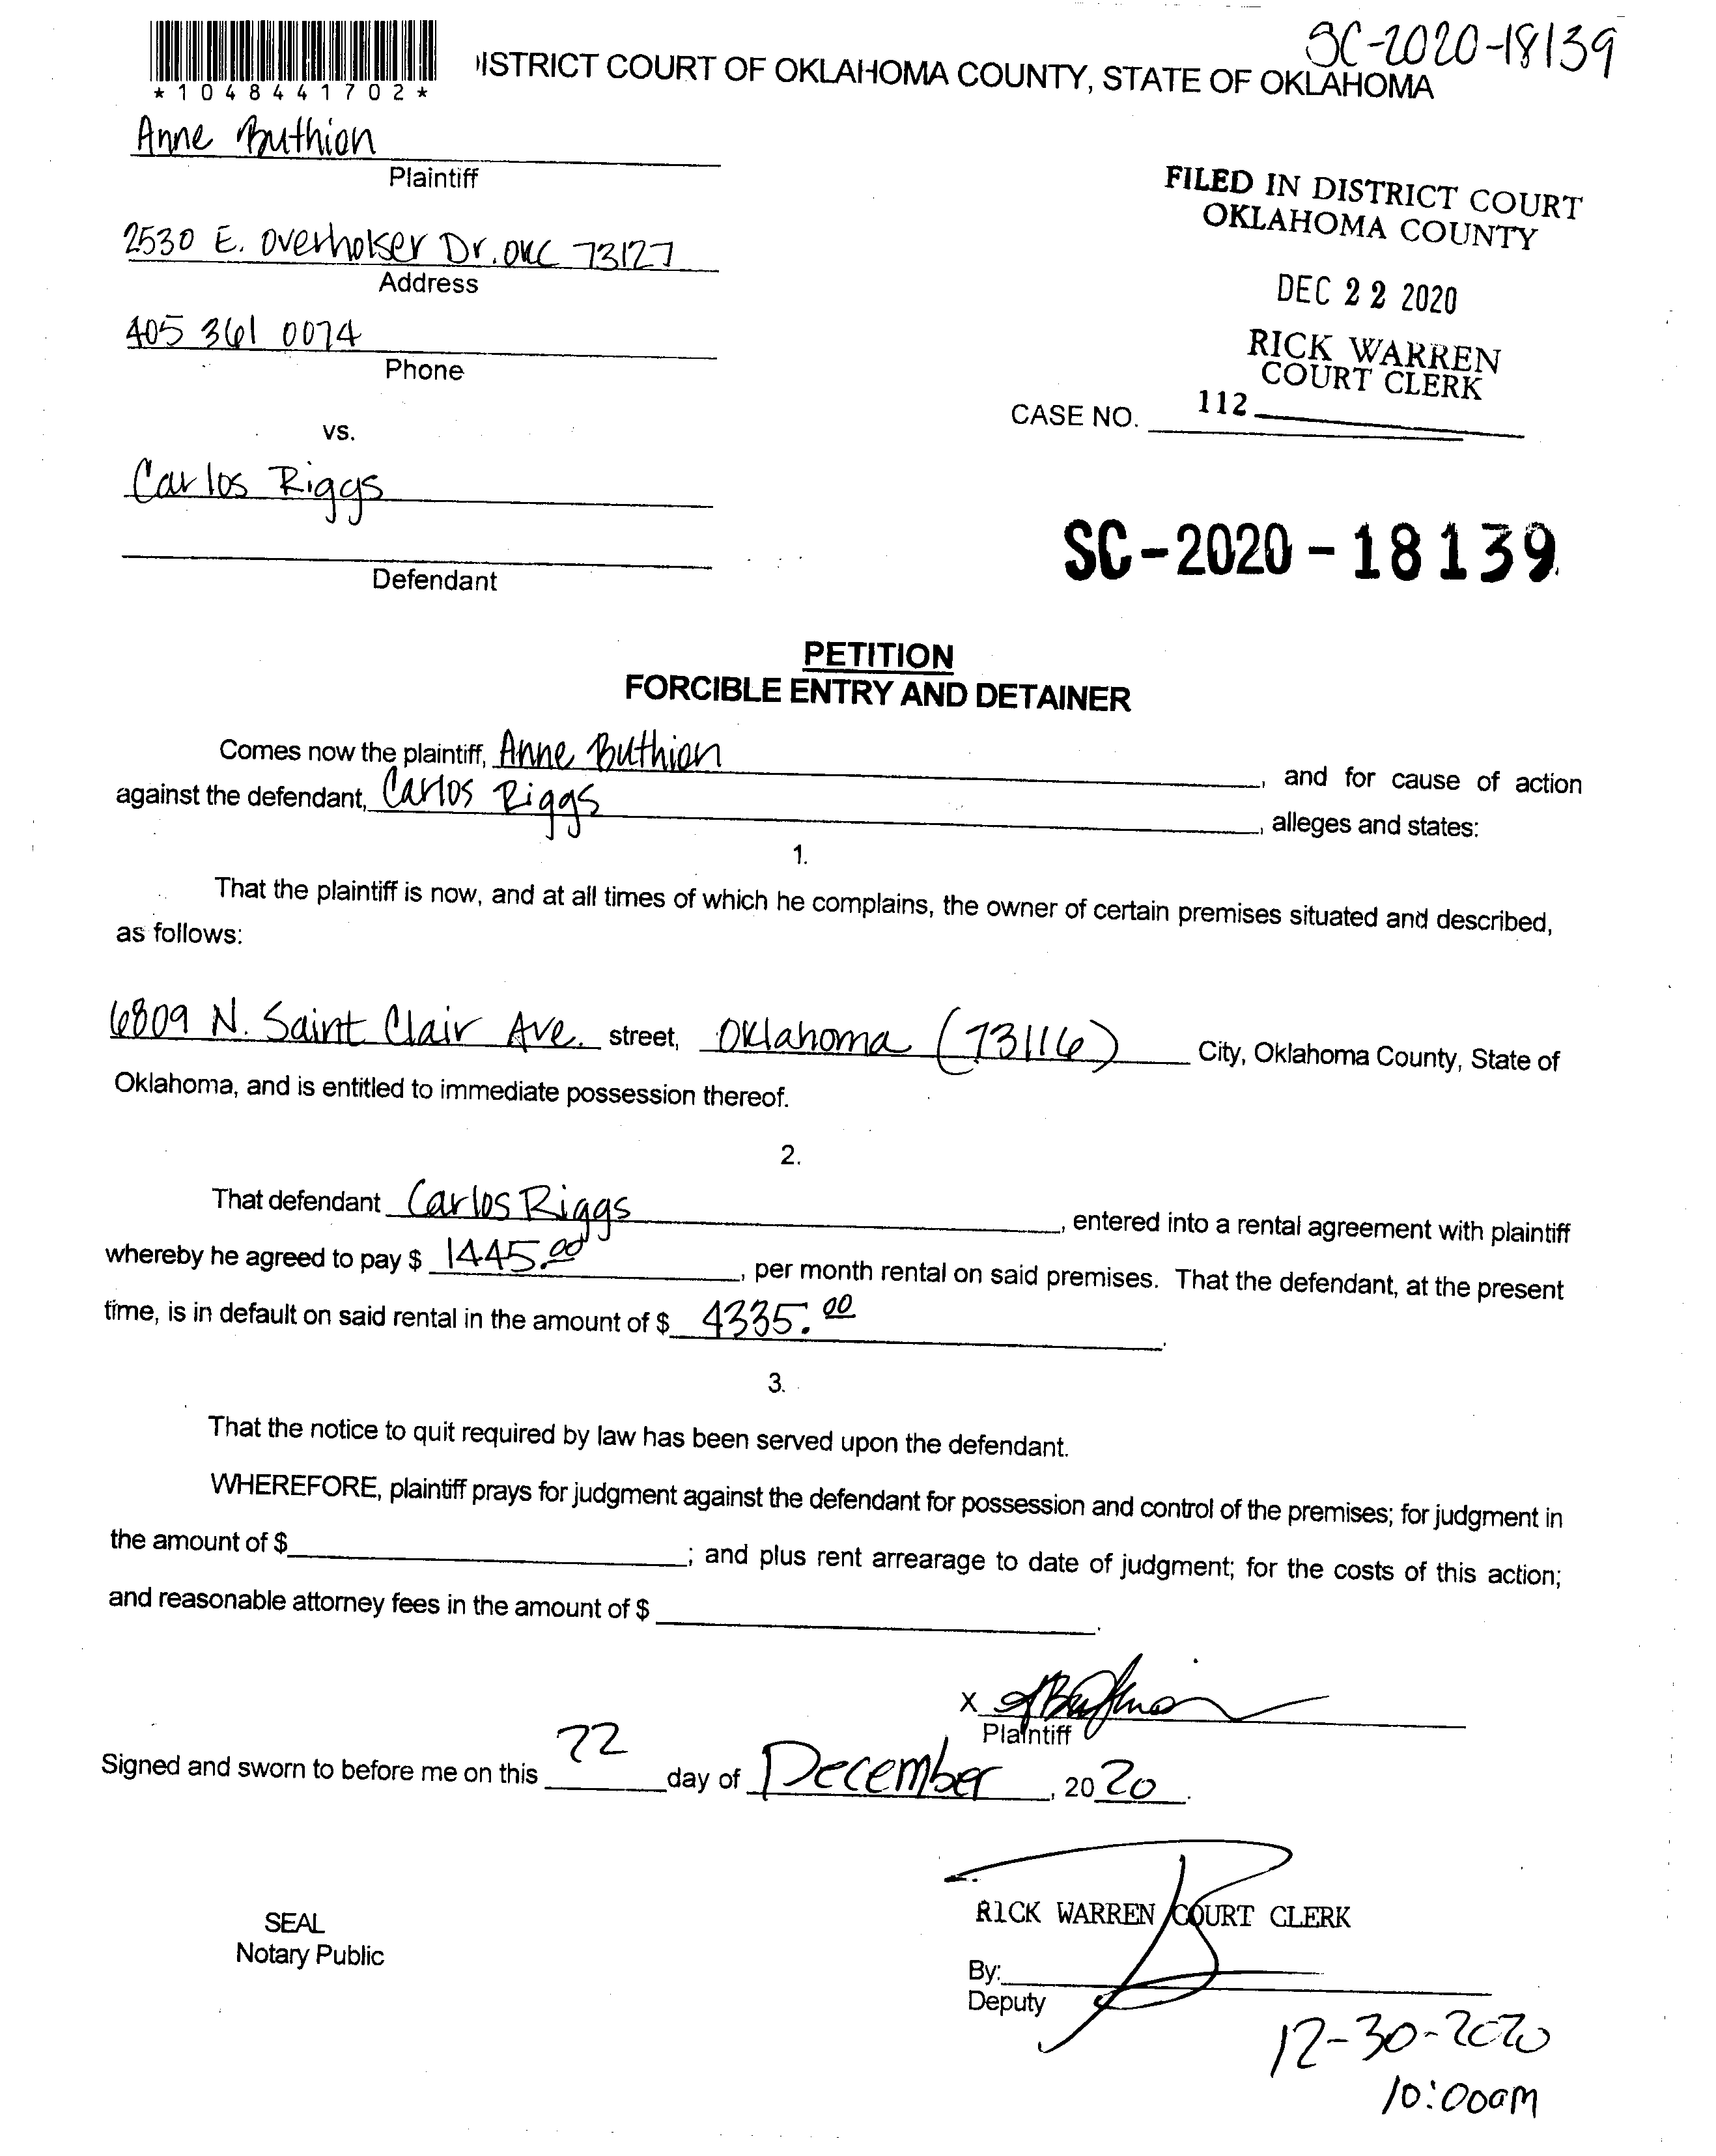 SC-2020-18139
*1048441702*
ISTRICT COURT OF OKLAHOMA COUNTY, STATE OF OKLAHOMA
Anne Buthion
Plaintiff
2530 E. Overholser Dr. OKC 73127
Address
405 361 0074
Phone
vs.
Carlos Riggs
Defendant
FILED IN DISTRICT COURT
OKLAHOMA COUNTY
DEC 22 2020
RICK WARREN
COURT CLERK
CASE NO. 112
SC-2020-18139
PETITION
FORCIBLE ENTRY AND DETAINER
Comes now the plaintiff, Anne Buthion, and for cause of action
against the defendant, Carlos Riggs, alleges and states:
1.
That the plaintiff is now, and at all times of which he complains, the owner of certain premises situated and described,
as follows:
6809 N. Saint Clair Ave. street, Oklahoma (73116) City, Oklahoma County, State of
Oklahoma, and is entitled to immediate possession thereof.
2.
That defendant Carlos Riggs, entered into a rental agreement with plaintiff
whereby he agreed to pay $ 1445.00, per month rental on said premises. That the defendant, at the present
time, is in default on said rental in the amount of $ 4335.00.
3.
That the notice to quit required by law has been served upon the defendant.
WHEREFORE, plaintiff prays for judgment against the defendant for possession and control of the premises; for judgment in
the amount of $; and plus rent arrearage to date of judgment; for the costs of this action;
and reasonable attorney fees in the amount of $.
X AButhion
Plaintiff
Signed and sworn to before me on this 22 day of December, 2020.
RICK WARREN COURT CLERK
SEAL
Notary Public
By:
Deputy
12-30-2020
10:00am